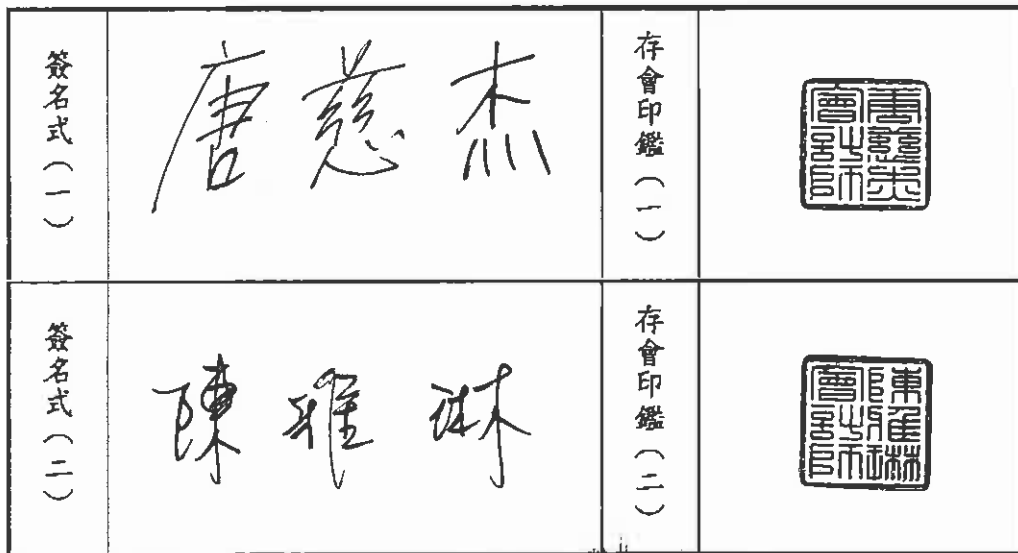 簽名式（一）
唐慈杰
存會印鑑（一）
唐慈杰會計師
簽名式（二）
陳雅琳
存會印鑑（二）
陳雅琳會計師